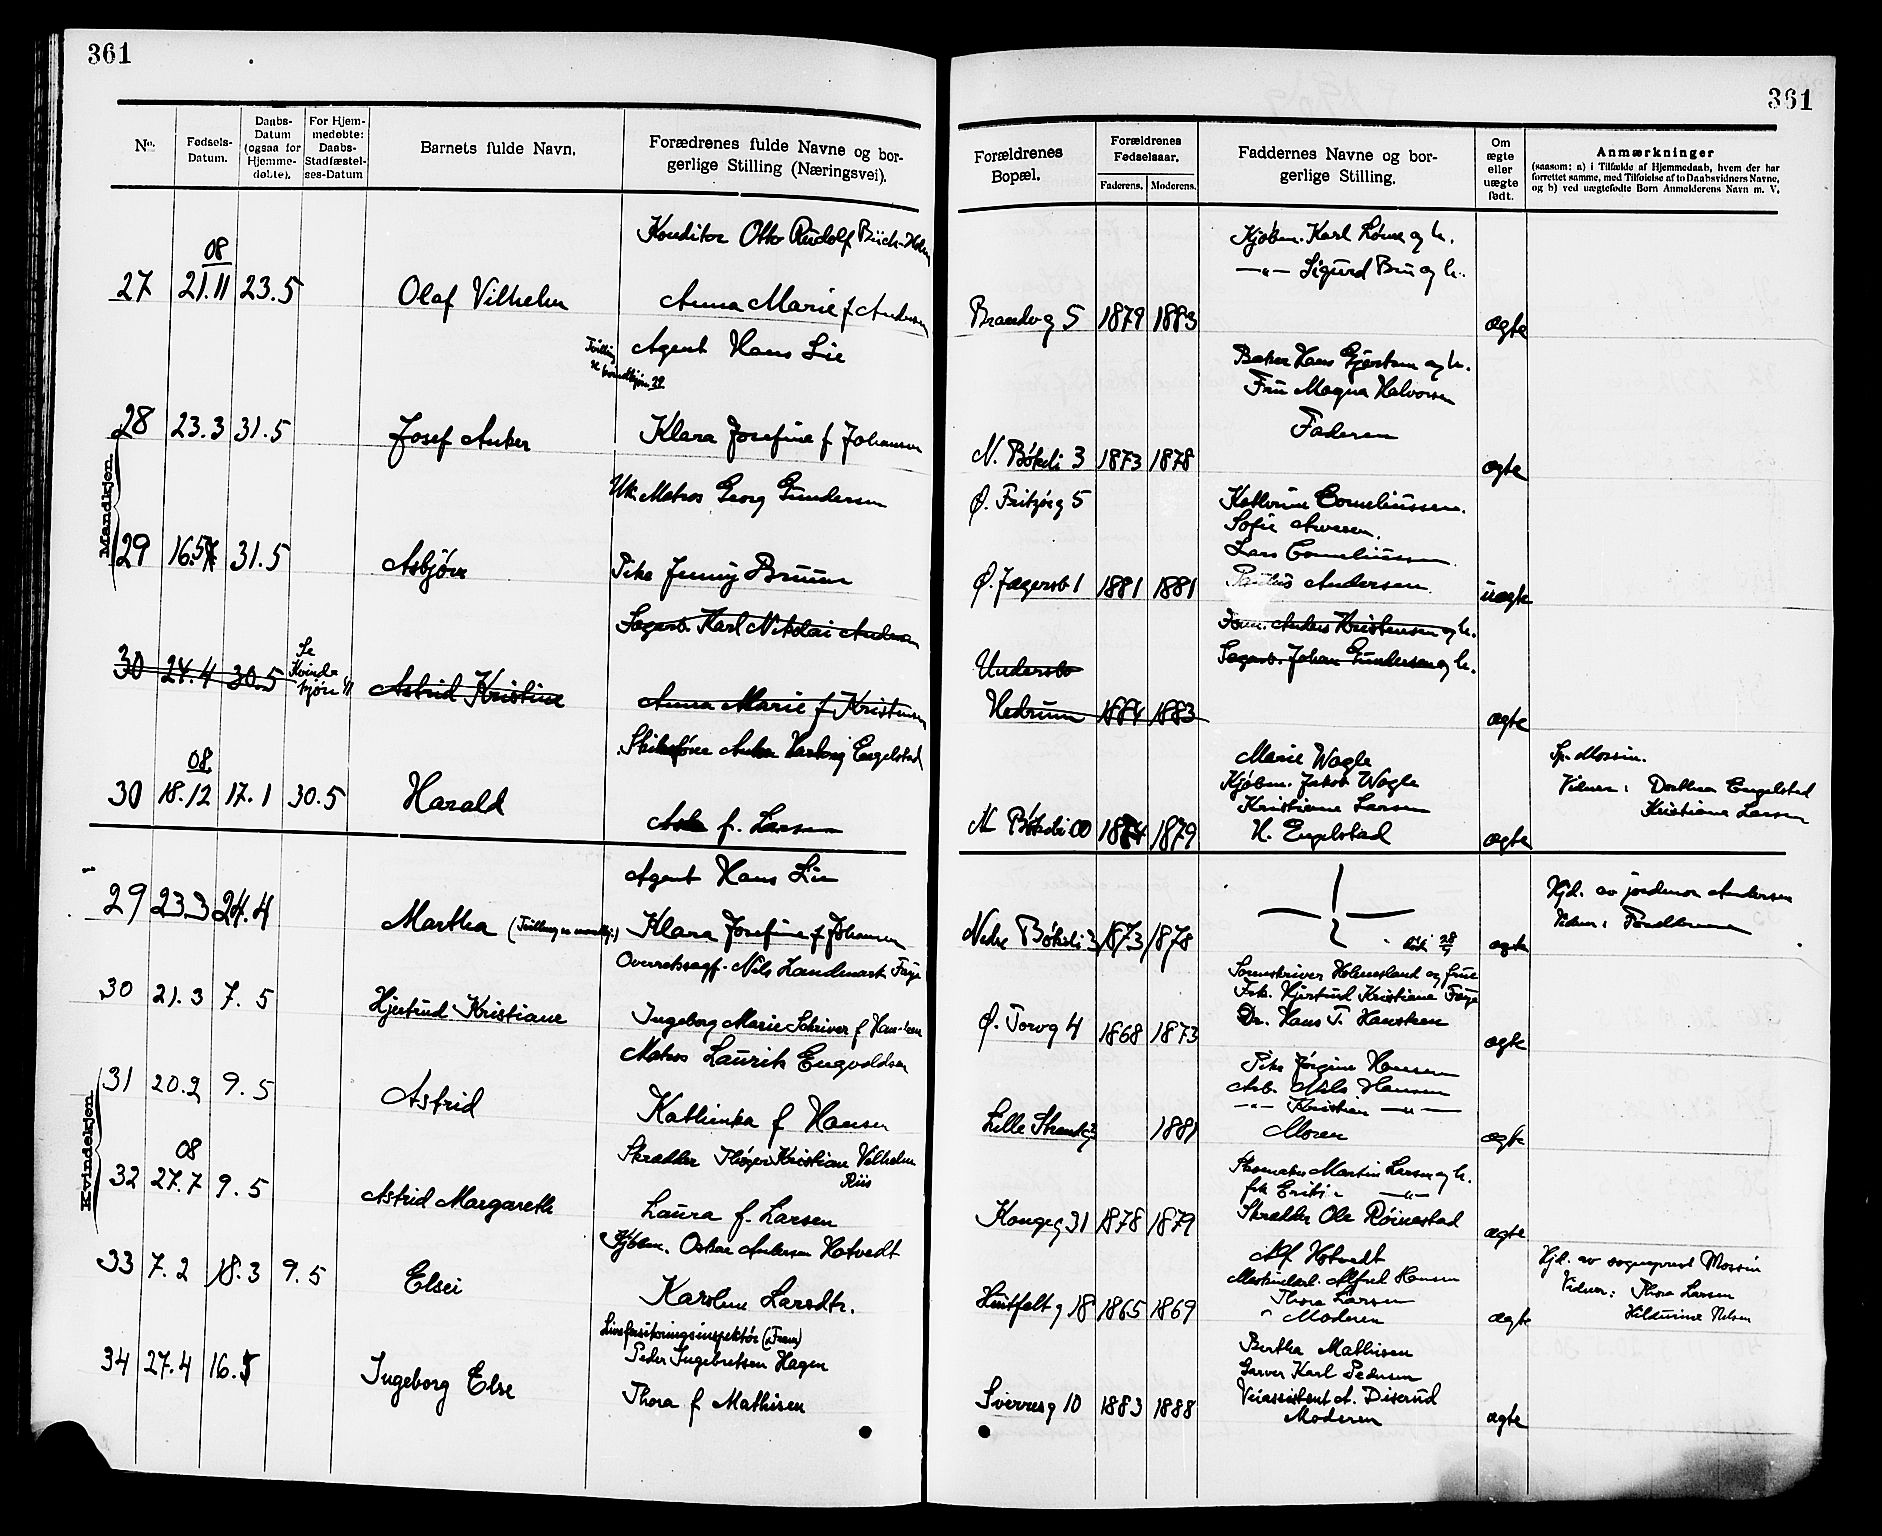 361
361
No.
Fødsels-Datum.
Daabs-Datum (ogsaa for Hjemme-døbte).
For Hjem-medøbte: Daabs-Stadfæstel-ses-Datum
Barnets fulde Navn.
Forældrenes fulde Navne og bor-gerlige Stilling (Næringsvei).
Forældrenes Bopæl.
Forældrenes Fødselsaar.
Faderens. Moderens.
Faddernes Navne og bor-gerlige Stilling.
Om ægte eller uægte født.
Anmærkninger
(saasom: a) i Tilfælde af Hjemmedaab, hvem der har
forrettet samme, med Tilføielse af to Daabsvidners Navne,
og b) ved uægtefødte Børn Anmelderens Navn m. V.
Mandkjøn.
Konditor Otto Rudolf Buch-Holm
Kjøbm. Karl Lorne og h.
08
—"— Sigurd Bru og h.
27 21.11 23.5 Olaf Vilhelm Anna Marie f Andersen Brandvg 5 1879 1883 ægte
Tvilling
Agent Hans Lie
Baker Hans Gjertsen og h.
Fru Magna Halvorsen
28 23.3 31.5 Josef Anker Klara Josefine f Johansen N. Bøkeli 3 1873 1878 Faderen ægte
Uk. Matros Georg Gundersen Ø. Fritzøeg 5 Kathrine Corneliussen.
Sofie
Lars Corneliussen
29 16.5 31.5 Asbjørn Pike Jenny Bruun Ø. Jegersb 1 1881 1881 Paulus Andersen uægte
Sagarb. Karl Nikolai Andersen Anders Kristensen og h.
Se Kvindekjøn
Undersbo Sagarb. Johan Gundersen og h.
30 24.4 30.5 Astrid Kristine Anna Marie f Kristensen Hedrum 1884 1883 ægte
Skibsfører Anker Engelstad Marie Wagle Sp. Mossin.
08
Kjøbm. Jakob Wagle Vidner: Dorthea Engelstad
Kristiane Larsen Kristiane Larsen
30 18.12 17.1 30.5 Harald f. Larsen N. Bøkeli 00 1874 1879 H. Engelstad ægte
Kvindekjøn.
Agent Hans Lie
Hjd. av jordmor Andersen
29 23.3 24.4 Martha (Tvilling m mandkj.) Klara Josefine f. Johansen Nedre Bøkeli 3 1873 1878 ægte Vidner: Forældrene
Overretssagf. Nils Landmark Faye Sorenskriver Holmesland og frue
Frk. Hjertrud Kristiane Faye
30 21.3 7.5 Hjertrud Kristiane Ingeborg Marie Schriver f Hansteen Ø. Torvg 4 1868 1873 Dr. Hans T. Hansteen ægte
Matros Laurits Engvoldsen Pike Jørgine Hansen
Arb. Nils Hansen
—"— Kristian —"—
31 20.2 9.5 Astrid Kathinka f Hansen Lille Strandg 1881 Moren ægte
08
Skrædder Thøger Kristian Vilhelm Riis Skomaker Martin Larsen og h.
32 27.7 9.5 Astrid Margareth Laura f. Larsen Kongeg 31 1878 1879 Skrædder Ole Røinestad ægte
Kjøbm. Oskar Andersen Hotvedt Alf Hotvedt Hjd. av sogneprest Mossin
Alfred Hansen Vidner: Thora Larsen
Thora Larsen
33 7.2 18.3 9.5 Elsei Karoline Larsdtr. Huitfeltg 18 1865 1869 Moderen ægte
Livsforsikringsinspektør (Fram) Bertha Mathisen
Peder Ingebretsen Hagen Garver Karl Pedersen
Veiassistent A. Diserud
34 27.4 16.5 Ingeborg Else Thora f Mathisen Sverresg 10 1883 1888 Moderen ægte